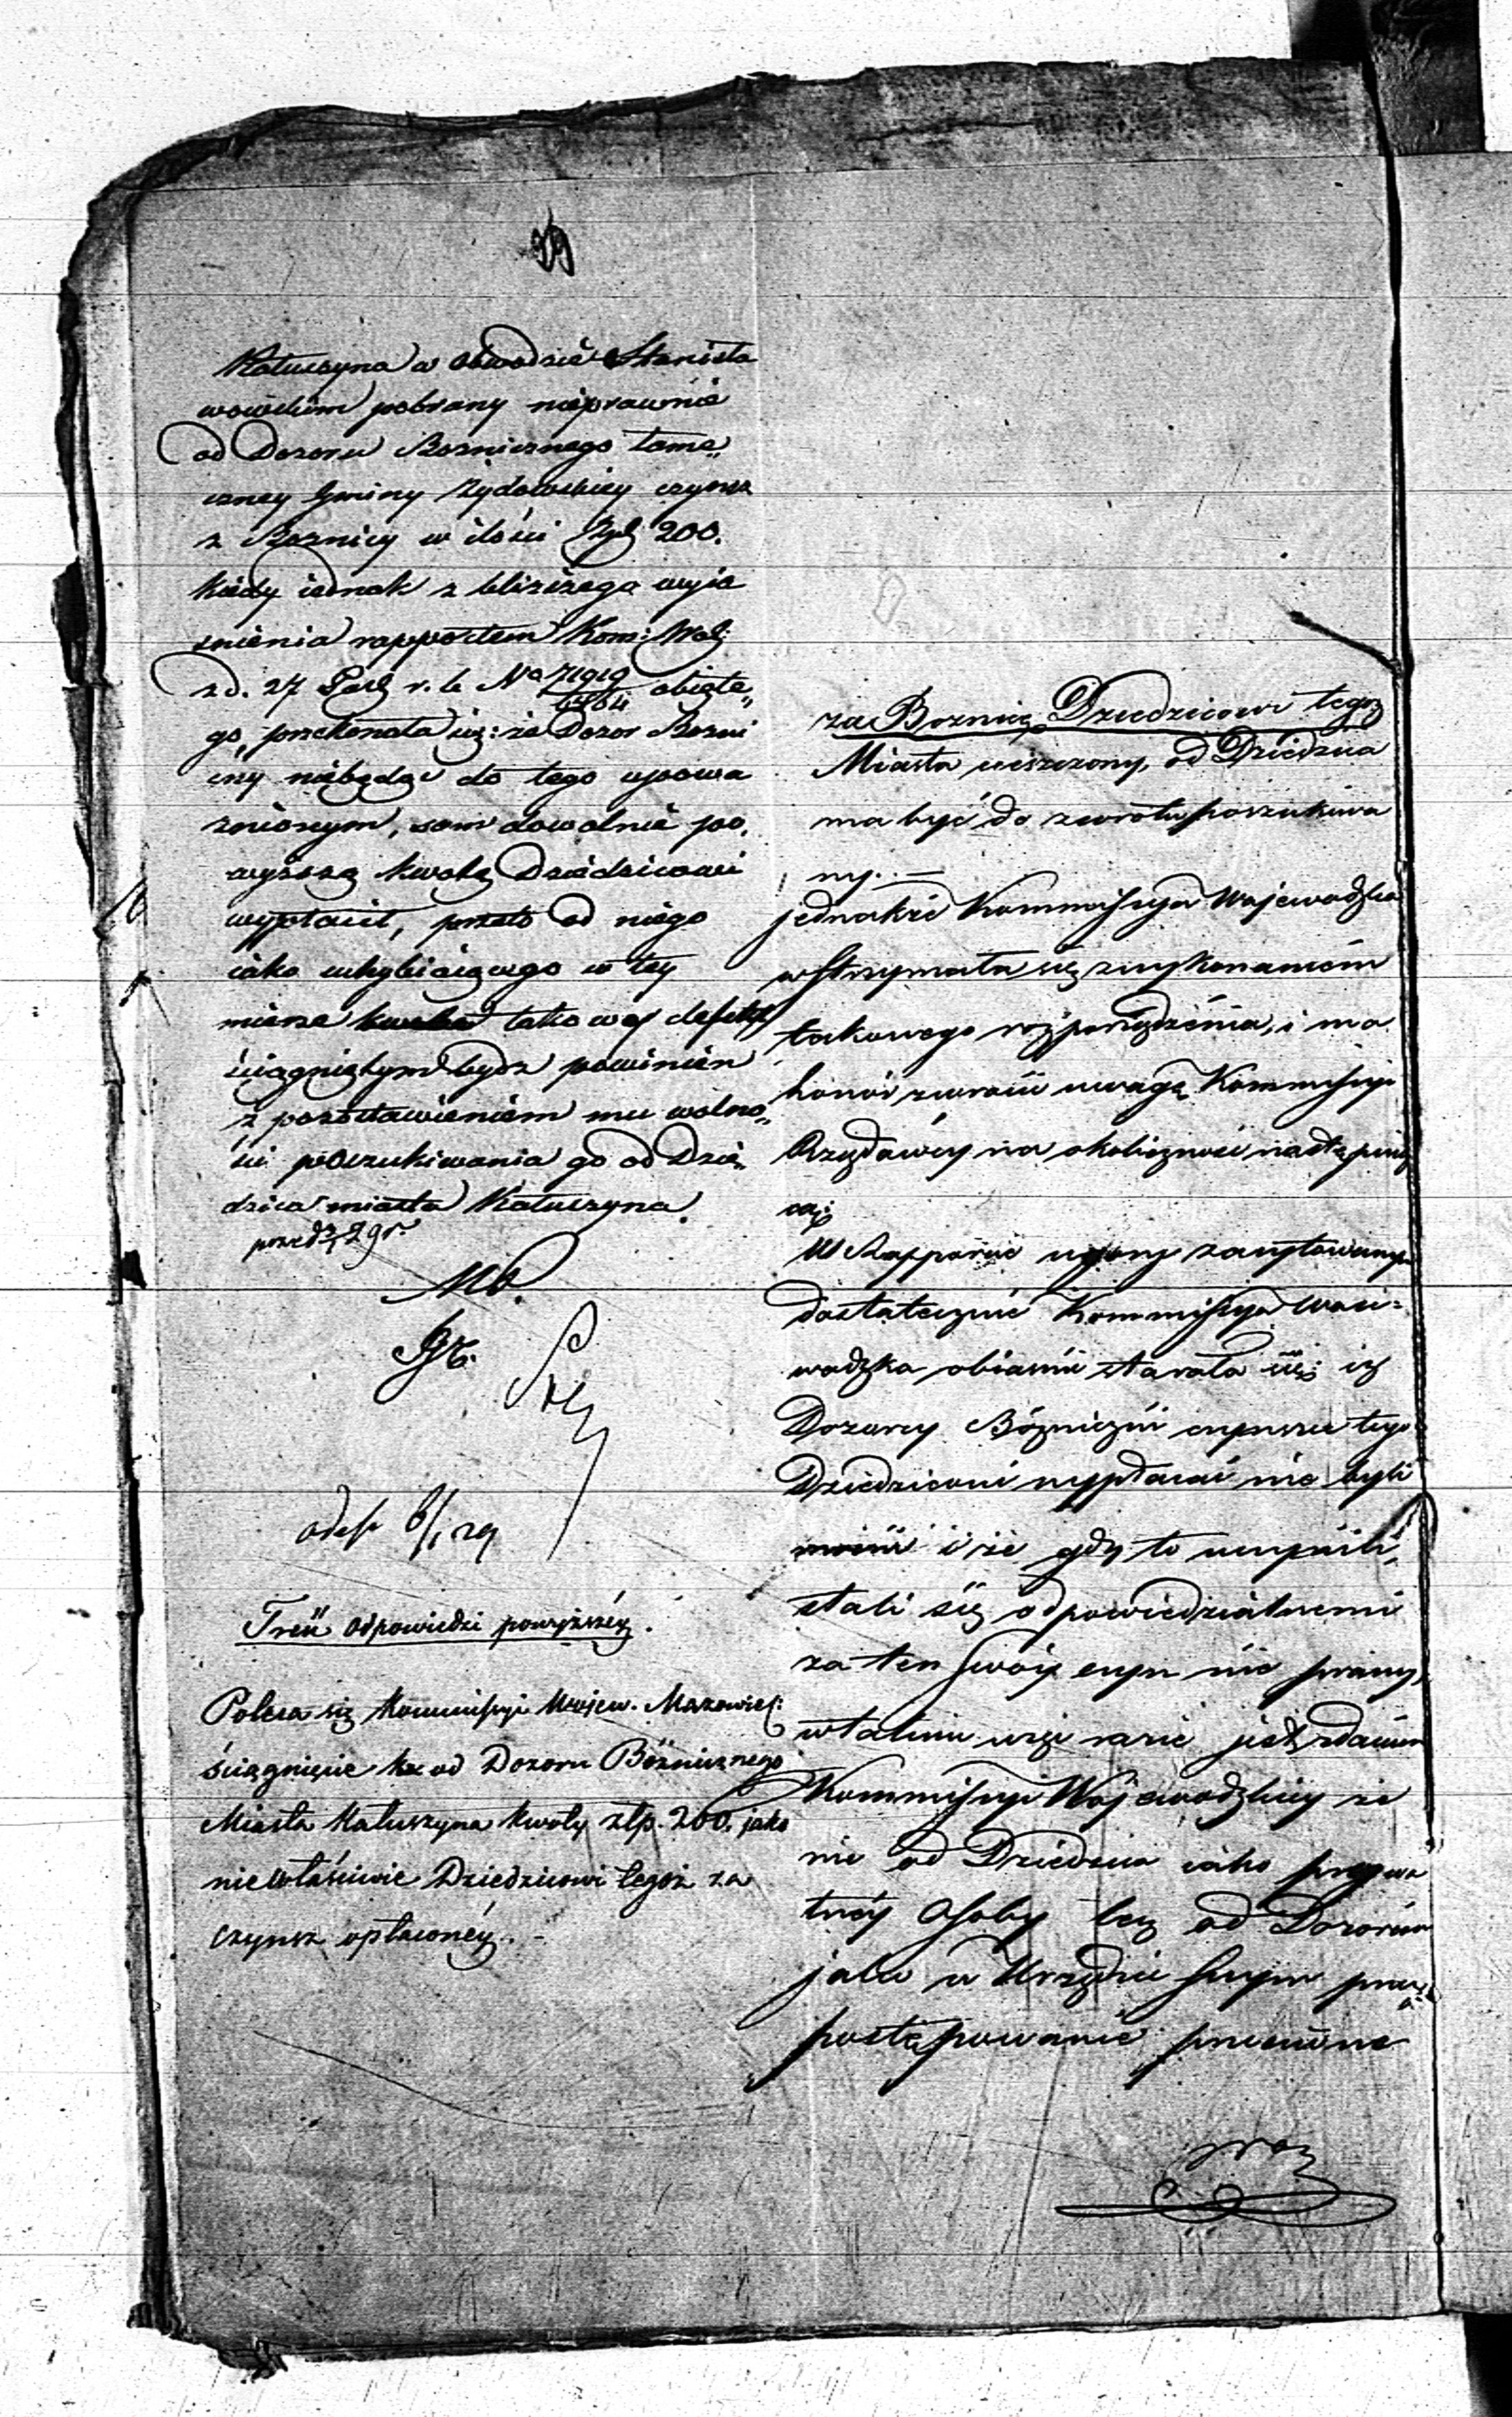 Kałuszyna w obwodzie Stanisła
wowskim pobrany nieprawnie
od Dozoru Boznicznego tame„
czney Gminy Żydowskiey czynsz
z Boznicy w ilości Złp 200.
kiedy iednak z bliższego wyia
snienia rapportem Kom: Woj:
z d. 27 Paźd r. b. No 71919 obięte„
go, przekonała się: że Dozor Bozni
czny niebędąc do tego upowa
żnionym, sam dowolnie po„
wyższą kwotę Dziedzicowi
wypłacił, przeto od niego
iako uchybiaiącego w tey
mierze takowy defekt
ściągniętym bydz powinien
z pozostawieniem mu wolno„
ści poszukiwania go od Dzie„
dzica miasta Kałuszyna.
M.
odesł 6/1 29
Treść odpowiedzi powyższéy.
Poleca się Kommissyi Wojew. Mazowiec:
ściągnięcie od Dozoru Bóżnicznego
Miasta Kałuszyna kwoty złp. 200. jako
niewłaściwie Dziedzicowi tegoż za
czynsz opłaconéy. -
za Boznicę Dziedzicowi tegoż
Miasta uiszczony, od Dziedzica
ma być do zwrotu poszukiwa
ny. —
jednakże Kommissyja Wojewodzka
wstrzymała się z wykonaniem
takowego rozporządzenia, i ma
honor zwrócić uwagę Kommissyi
Rządowéy na okoliczność następuią
cą:
W Rapporcie wyzey zacytowanym
dostatecznie Kommissya Woie=
wodzka obiaśnić starała się: iż
Dozorcy Bóżniczni czynszu tego
Dziedzicowi wypłacać nie byli
i że gdy to uczynili,
stali się odpowiedzialnemi
za ten swóy czyn nie prawy,
w takim więc razie jest zdaniem
Kommissyi Wojewodzkiey że
nie od Dziedzica iako prywa
tnéy Osoby lecz od Dozorców
jako w Urzędzie swym
postępowanie przeciwne